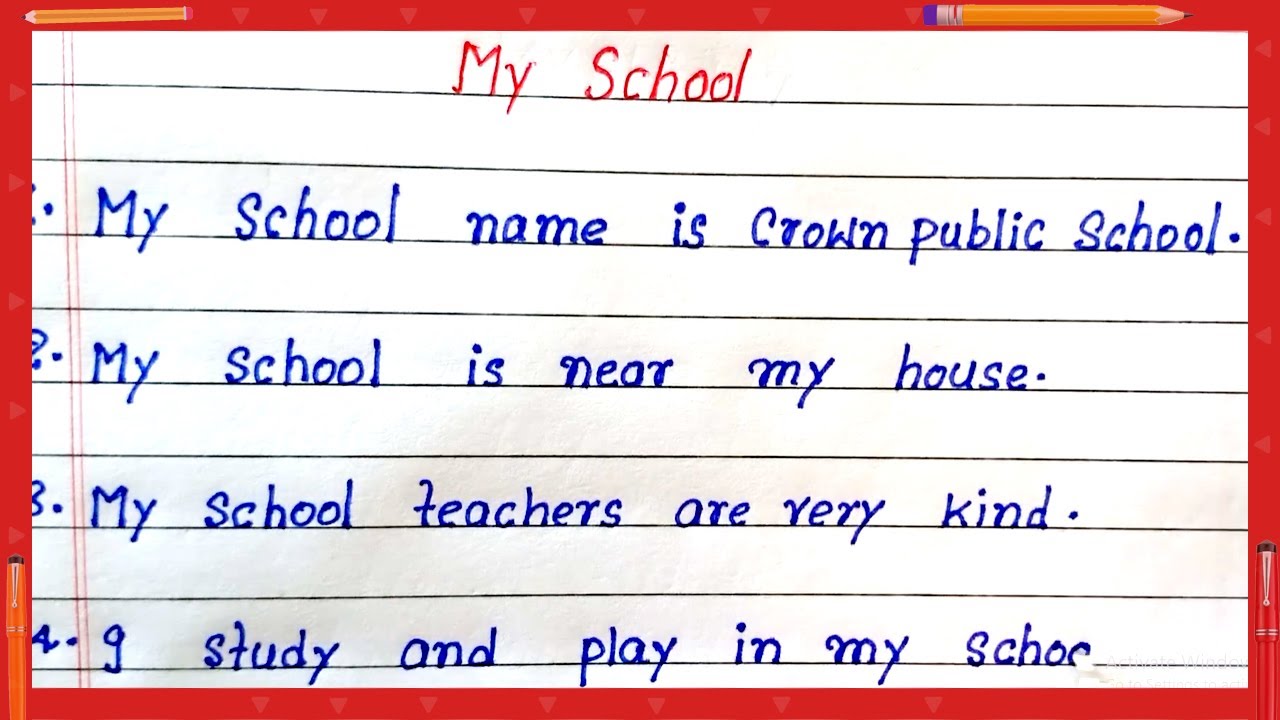 My School
1. My School name is Crown public School.
2. My school is near my house.
3. My school teachers are very kind.
4. I study and play in my schoo
Activate Window
Go to Settings to acti